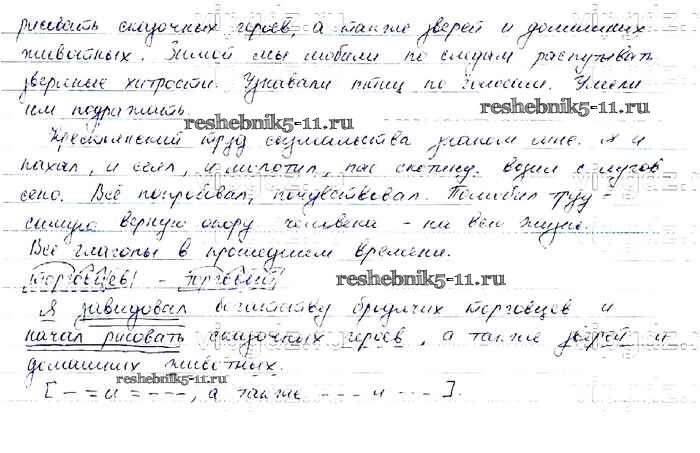 рисовать сказочных героев, а также зверей и домашних
животных. Зимой мы любили по следам распутывать
звериные хитрости. Узнавали птиц по голосам. Умели
им подражать.
reshebnik5-11.ru
reshebnik5-11.ru
Крестьянский труд сызмальства знаком мне. Я и
пахал, и сеял, и молотил, пас скотину, возил с лугов
сено. Всё попробовал, почувствовал. Полюбил труд -
самую верную опору человека - на всю жизнь.
Все глаголы в прошедшем времени.
торговцев - торговый
reshebnik5-11.ru
Я завидовал богатству бродячих торговцев и
начал рисовать сказочных героев, а также зверей и
домашних животных.
reshebnik5-11.ru
[ - = и = - - -, а также - - - и - - - ].